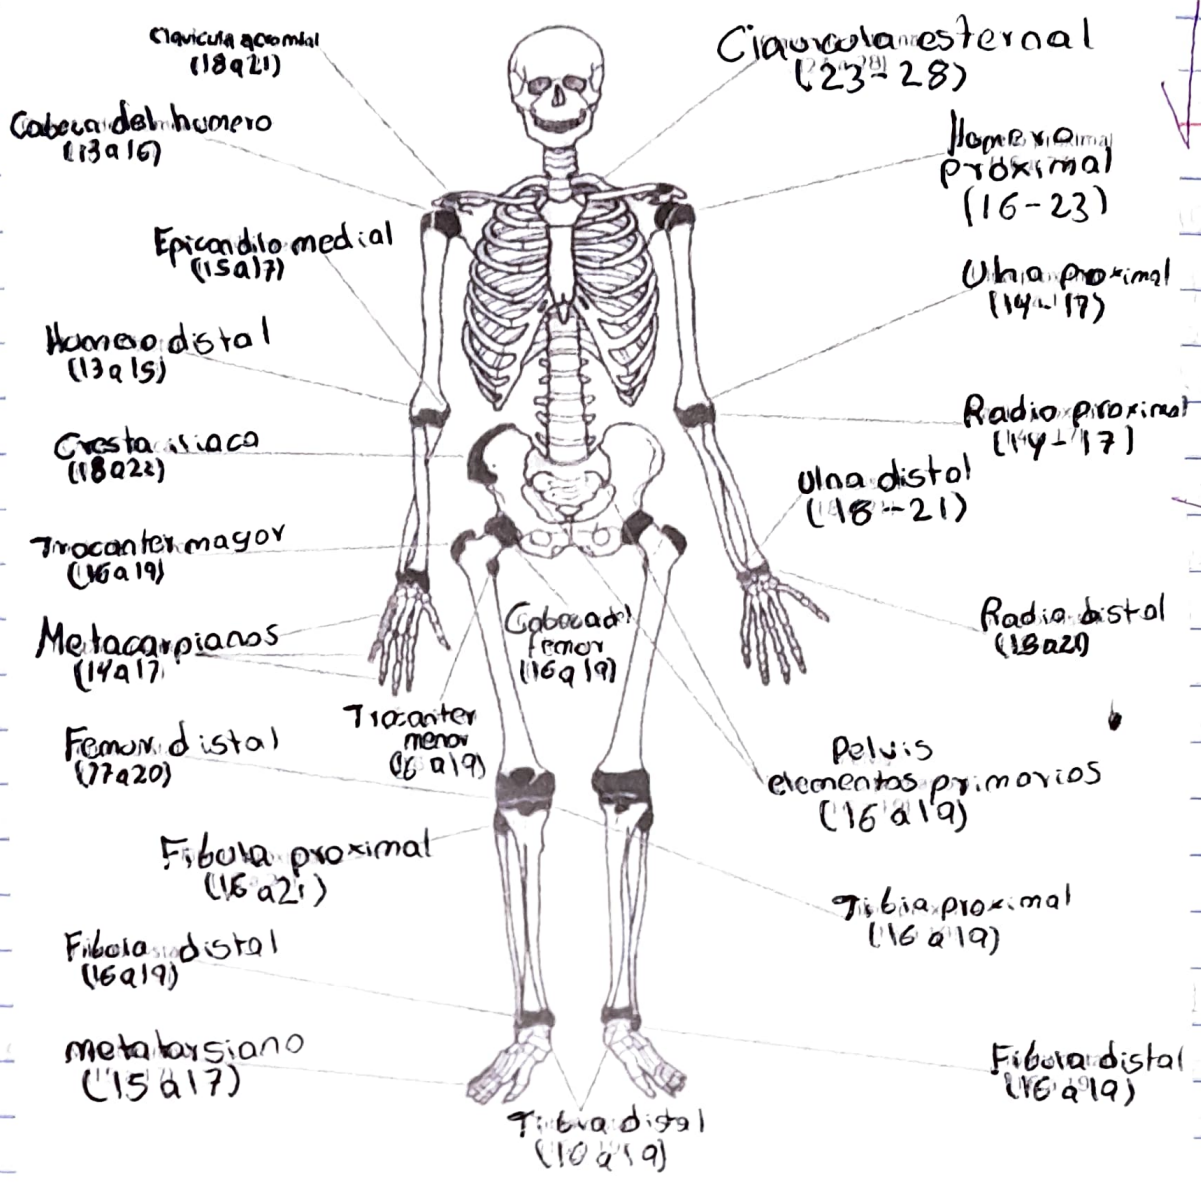 Clavicula acromial
(18a21)
Cabeca del humero
(13a16)
Epicondilo medial
(15a17)
Humero distal
(13a15)
Cresta iliaca
(18a22)
Trocanter mayor
(16a19)
Metacarpianos
(14a17)
Femur distal
(17a20)
Fibula proximal
(16a21)
Fibula distal
(16a19)
metatarsiano
(15a17)
Cabeca del
femor
(16a19)
Trocanter
menor
(16a19)
Tibia distal
(16a19)
Clavicula esternal
(23-28)
Humero
proximal
(16-23)
Ulna proximal
(14-17)
Radio proximal
(14-17)
Ulna distal
(18-21)
Radio distal
(18a21)
Pelvis
elementos primarios
(16a19)
Tibia proximal
(16a19)
Fibula distal
(16a19)